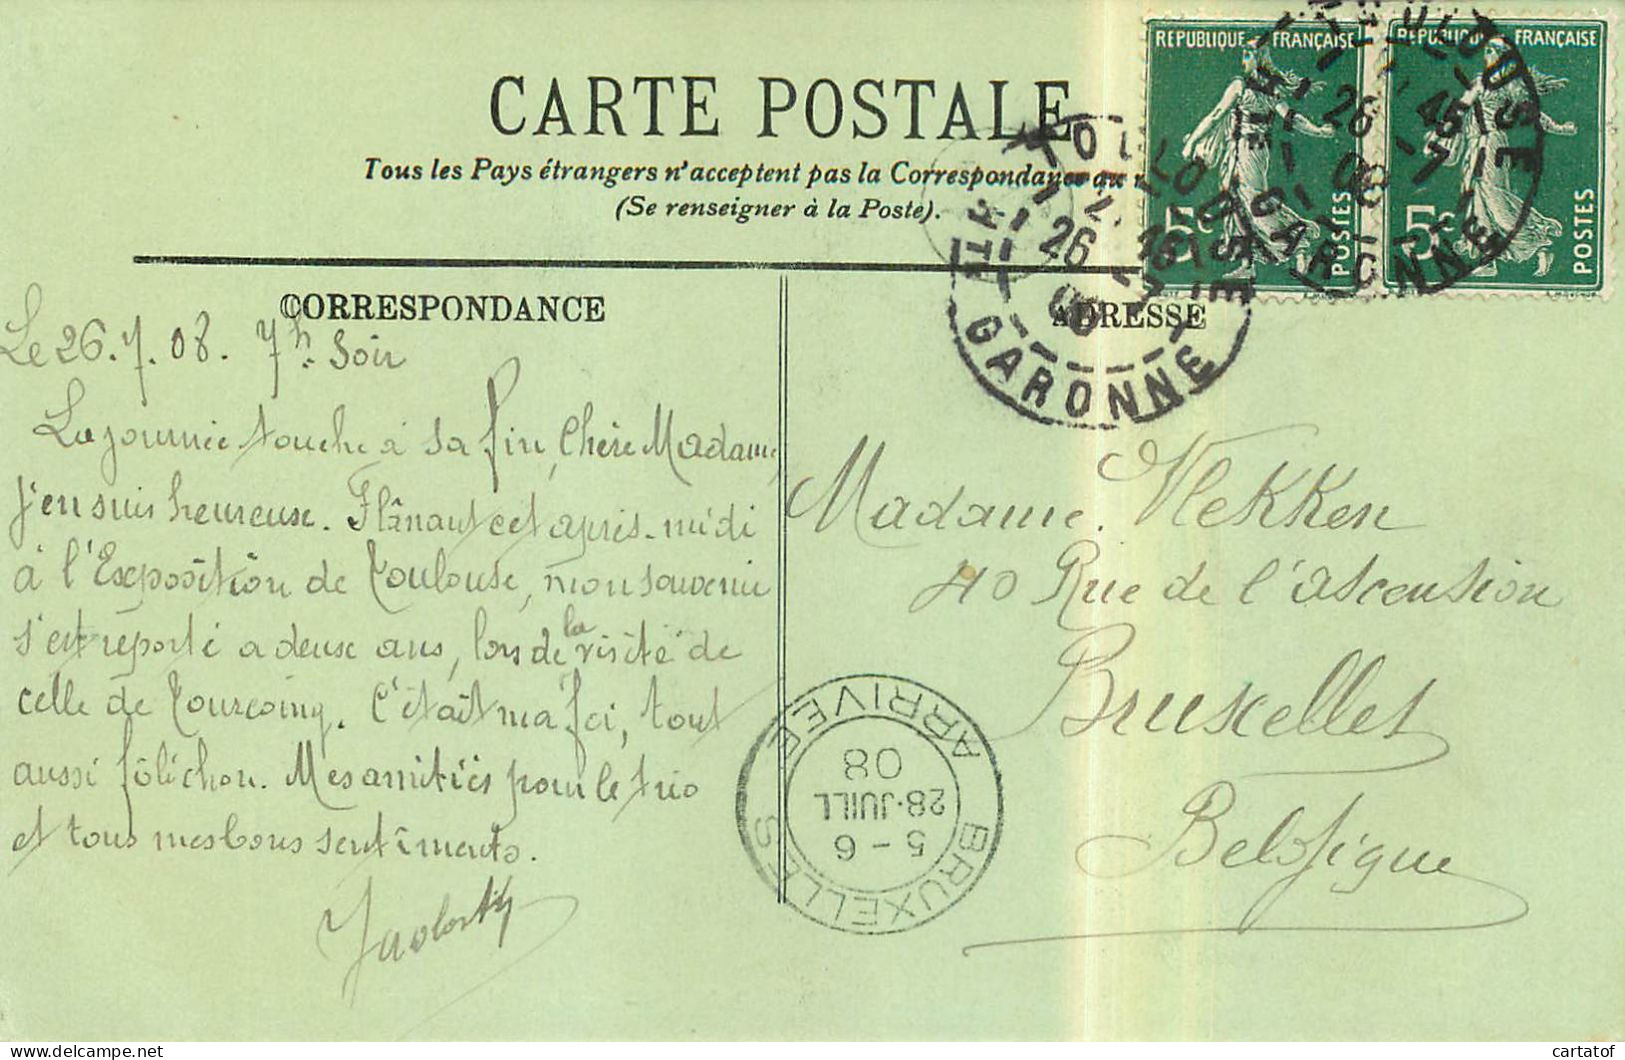 CARTE POSTALE
Tous les Pays étrangers n'acceptent pas la Correspondance au
(Se renseigner à la Poste).
REPUBLIQUE FRANÇAISE
5c POSTES
REPUBLIQUE FRANÇAISE
5c POSTES
TOULOUSE
Hte GARONNE
26 - 7
08
TOULOUSE
Hte GARONNE
26 - 7
08
CORRESPONDANCE
ADRESSE
Le 26.7.08. 7h. Soir
La journée touche à sa fin, Chère Madame,
j'en suis heureuse. Flânant cet après-midi
à l'Exposition de Toulouse, mon souvenir
s'est reporté a deux ans, lors de la visite de
celle de Tourcoing. C'était ma foi, tout
aussi folichon. Mes amitiés pour le trio
et tous mes bons sentiments.
Madame Vlekken
40 Rue de l'ascension
Bruxelles
Belgique
BRUXELLES
5 - 6
28 · JUILL
08
ARRIVEE
cartatof